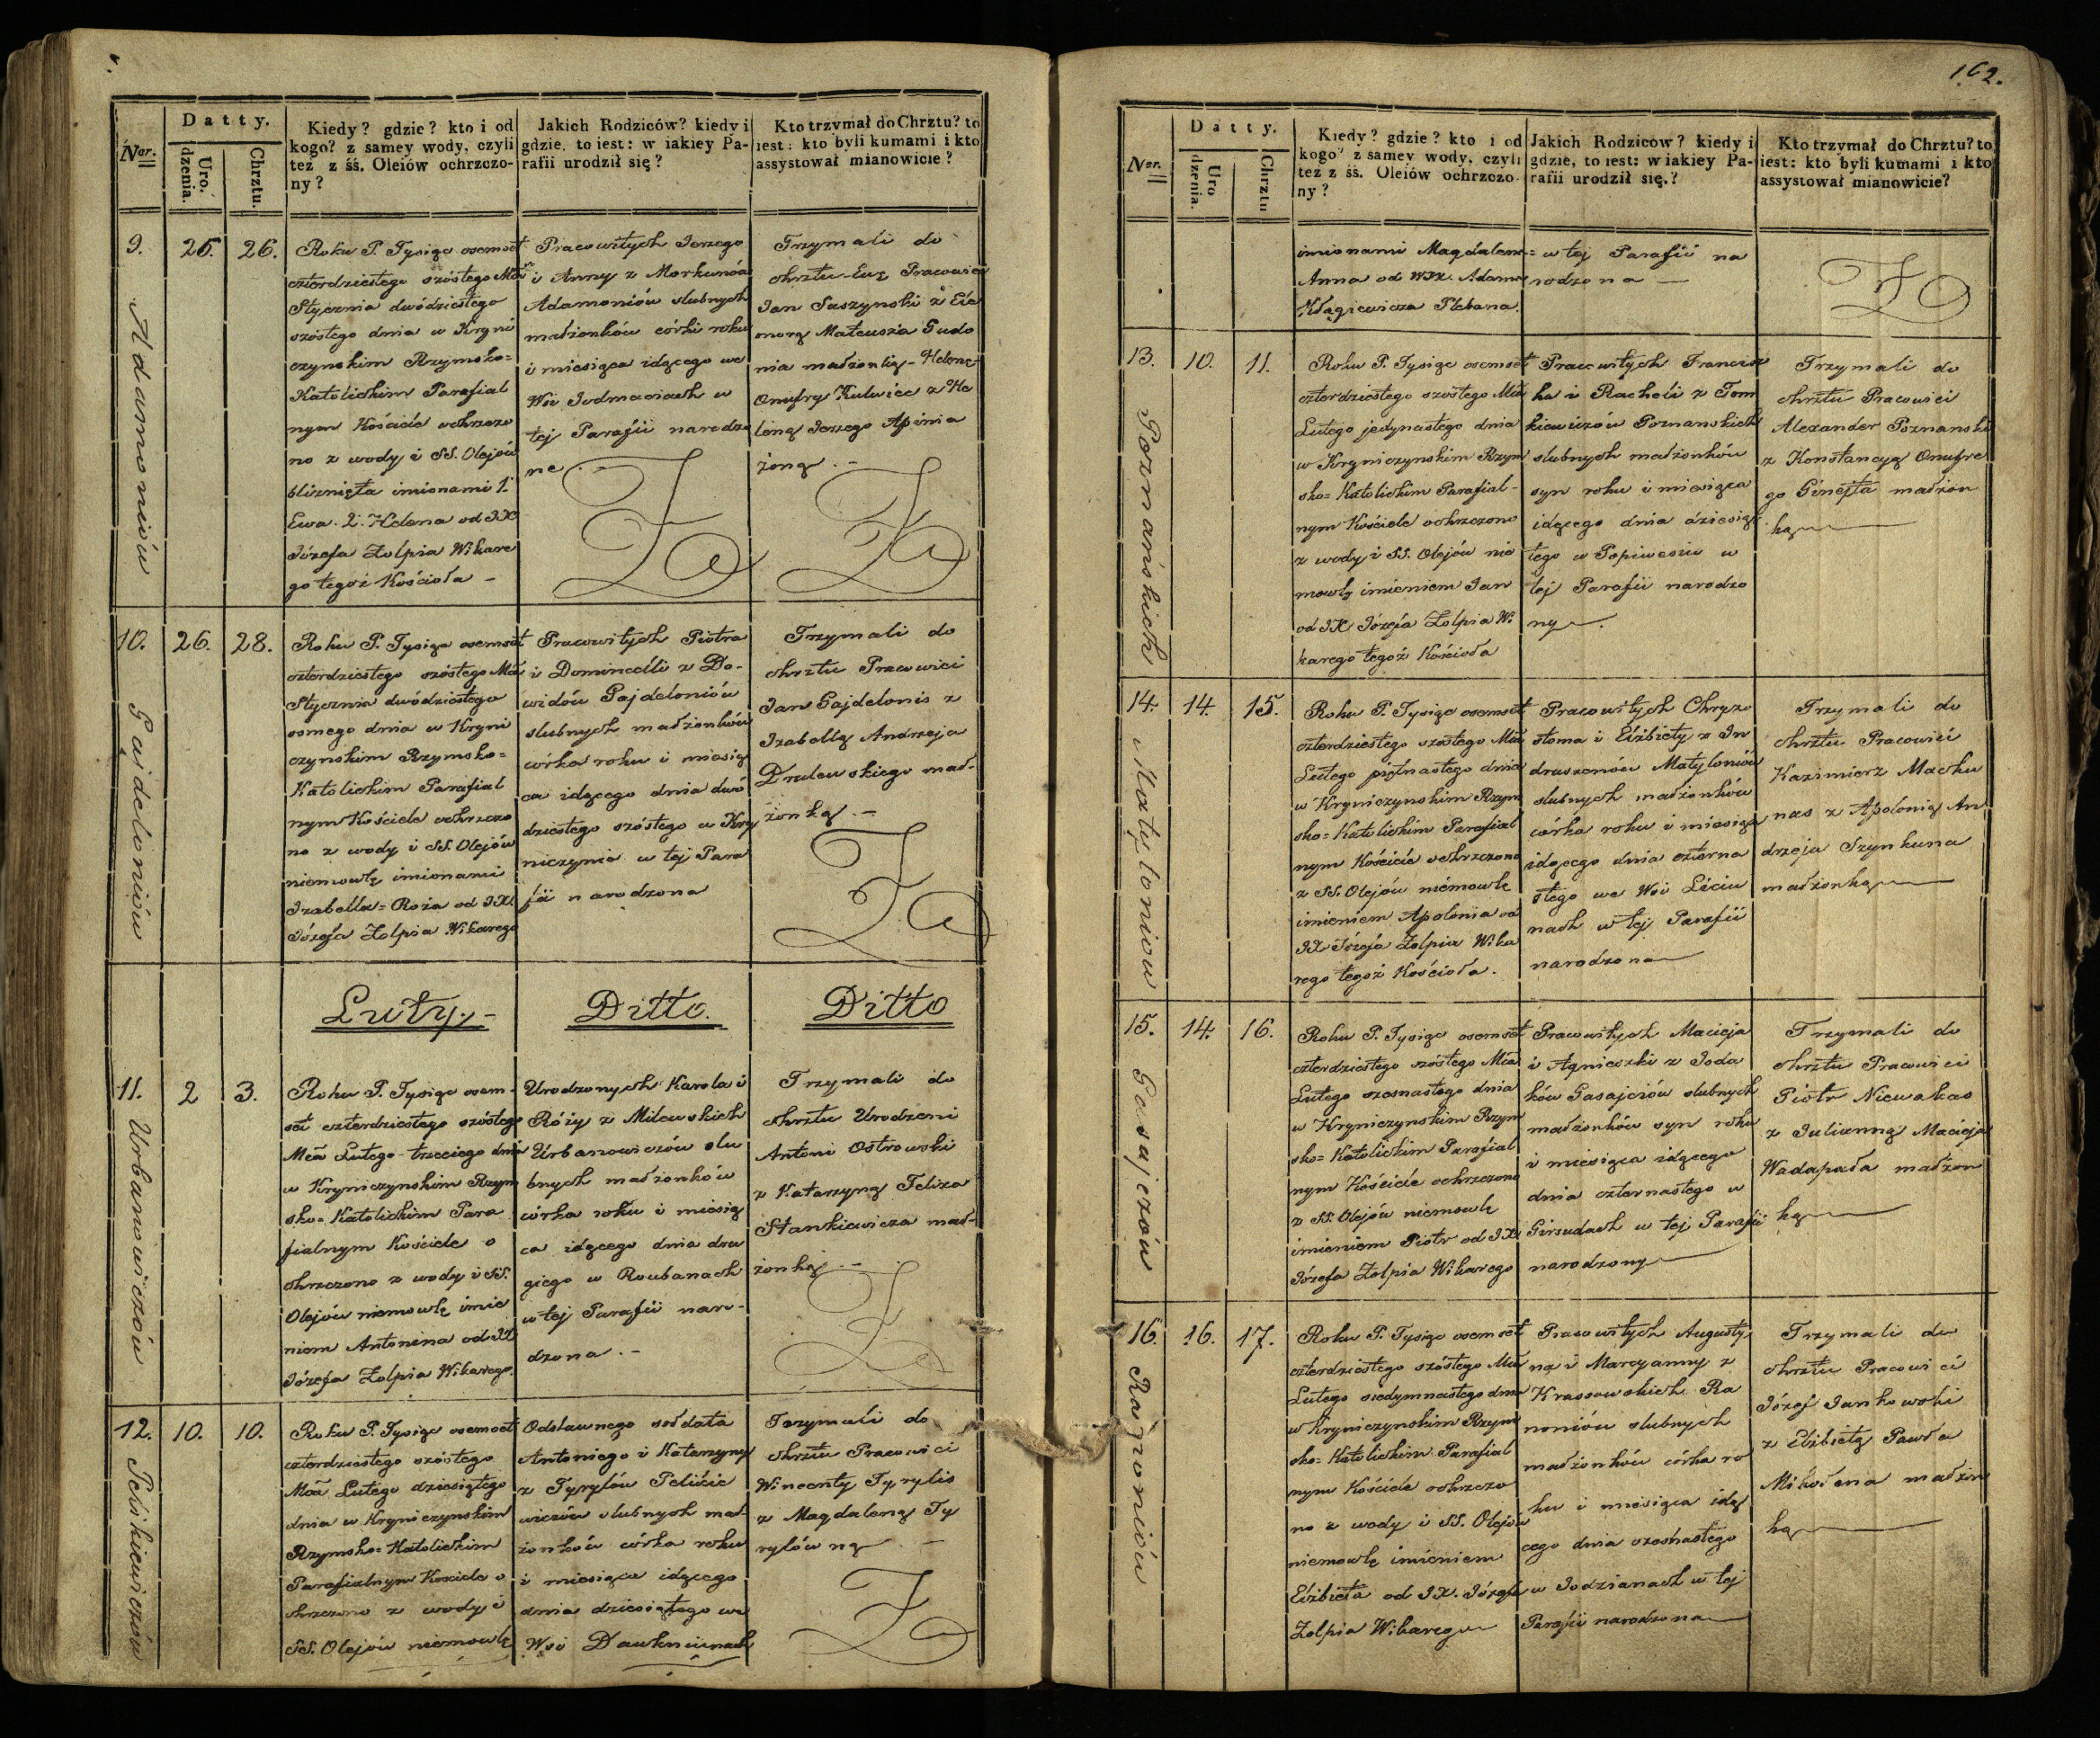 Nor.
Datty.
Uro. dzenia.
Chrztu.
Kiedy? gdzie? kto i od
kogo? z samey wody, czyli
też z śś. Oleiów ochrzczo-
ny?
Jakich Rodziców? kiedy i
gdzie, to iest: w iakiey Pa-
rafii urodził się?
Kto trzymał do Chrztu? to
iest: kto byli kumami i kto
assystował mianowicie?
9.
Adamoniów
25.
26.
Roku P. Tysiąc osemset
czterdziestego szóstego Mca
Stycznia dwódziestego
szóstego dnia w Kryni
czynskim Rzymsko=
Katolickim Parafial
nym Kościele ochrzczo
no z wody i SS. Olejów
bliznięta imionami 1.
Ewa. 2. Helena od JX
Józefa Zolpia Wikare
go tegoż Kościoła -
Pracowitych Jerzego
i Anny z Morkunów
Adamoniów slubnych
małżonków córki roku
i miesiąca idącego we
Wsi Jodmaciach w
tej Parafii narodzo
ne.-
Trzymali do
chrztu - Ewę Pracowici
Jan Suszynski z Ele
norą Mateusza Gudo
nia małżonką - Helenę
Onufry Kulwiec z He
leną Jerzego Apinia
żoną.-
10.
Gajdeloniów
26.
28.
Roku P. Tysiąc osemset
czterdziestego szóstego Mca
Stycznia dwódziestego
osmego dnia w Kryni
czynskim Rzymsko=
Katolickim Parafial
nym Kościele ochrzczo
no z wody i SS. Olejów
niemowlę imionami
Izabella=Roża od JX.
Józefa Zolpia Wikarego
Pracowitych Piotra
i Domincelli z Do-
widów Gajdeloniów
slubnych małżonków
córka roku i miesią
ca idącego dnia dwó
dziestego szóstego w Kry
niczynie w tej Para
fii narodzona
Trzymali do
chrztu Pracowici
Jan Gajdelonis z
Izabellą Andrzeja
Drulewskiego mał-
żonką.-
Luty.-
Ditto.
Ditto
11.
Urbanowiczów
2
3.
Roku P. Tysiąc osem-
set czterdziestego szóstego
Mca Lutego trzeciego dnia
w Kryniczynskim Rzym
sko=Katolickim Para
fialnym Kościele o
chrzczono z wody i SS.
Olejów niemowlę imie
niem Antonina od JX
Józefa Zolpia Wikarego.
Urodzonych Karola i
Róży z Milewskich
Urbanowiczów slu
bnych małżonków
córka roku i miesią
ca idącego dnia dru
giego w Roubanach
w tej Parafii naro-
dzona.-
Trzymali do
chrztu Urodzeni
Antoni Ostrowski
z Katarzyną Felixa
Stankiewicza mał-
żonką.-
12.
Peliskiewiczów
10.
10.
Roku P. Tysiąc osemset
czterdziestego szóstego
Mca Lutego dziesiątego
dnia w Kryniczynskim
Rzymsko=Katolickim
Parafialnym Kościele o
chrzczono z wody i
SS. Olejów niemowlę
Odstawnego sołdata
Antoniego i Katarzyny
z Tyrylów
wiczów slubnych mał-
żonków córka roku
i miesiąca idącego
dnia dziesiątego we
Wsi Daukniunach
Trzymali do
chrztu Pracowici
Wincenty Tyrylis
z Magdaleną Ty
rylówną.-
162.
Nor.
Datty.
Uro dzenia.
Chrztu
Kiedy? gdzie? kto i od
kogo? z samey wody, czyli
też z śś. Oleiów ochrzczo-
ny?
Jakich Rodziców? kiedy i
gdzie, to iest: w iakiey Pa-
rafii urodził się.?
Kto trzymał do Chrztu? to
iest: kto byli kumami i kto
assystował mianowicie?
imionami Magdalena=
Anna od WJX. Adama
Kłągiewicza Plebana.
w tej Parafii na
rodzona —
13.
Poznańskich
10.
11.
Roku P. Tysiąc osemset
czterdziestego szóstego Mca
Lutego jedynastego dnia
w Kryniczynskim Rzym
sko=Katolickim Parafial-
nym Kościele ochrzczono
z wody i SS. Olejów nie
mowlę imieniem Jan
od JX Józefa Zolpia Wi
karego tegoż Kościoła
Pracowitych Francisz
ka i Racheli z Tom
kiewiczów Poznanskich
slubnych małżonków
syn roku i miesiąca
idącego dnia dziesią
tego w Popiwesiu w
tej Parafii narodzo
ny —.
Trzymali do
chrztu Pracowici
Alexander Poznanski
z Konstancyą Onufre
go Ginejta małżon
ką —
14.
Matyloniow
14.
15.
Roku P. Tysiąc osemset
czterdziestego szostego Mca
Lutego piętnastego dnia
w Kryniczynskim Rzym
sko=Katolickim Parafial
nym Kościele ochrzczono
z SS. Olejów niemowlę
imieniem Apolonia od
JX Józefa Zolpia Wika
rego tegoż Kościoła.
Pracowitych Chryzo
stoma i Elżbiety z In
druszenów Matyloniów
slubnych małżonków
córka roku i miesiąca
idącego dnia czterna
stego we Wsi Leciu
nach w tej Parafii
narodzona —
Trzymali do
chrztu Pracowici
Kazimierz Macku
nas z Apolonią An
drzeja Szynkuna
małżonką —
15.
Gasajczów
14.
16.
Roku P. Tysiąc osemset
czterdziestego szóstego Mca
Lutego szesnastego dnia
w Kryniczynskim Rzym
sko=Katolickim Parafial
nym Kościele ochrzczono
z SS. Olejów niemowlę
imieniem Piotr od JX
Józefa Zolpia Wikarego
Pracowitych Macieja
i Agnieszki z Joda
ków Gasajciów slubnych
małżonków syn roku
i miesiąca idącego
dnia czternastego w
Girsudach w tej Parafii
narodzony —
Trzymali do
chrztu Pracowici
Piotr Niewakas
z Julianną Macieja
Wadapała małżon
ką —
16.
Ragnoniów
16.
17.
Roku P. Tysiąc osemset
czterdziestego szóstego Mca
Lutego siedymnastego dnia
w Kryniczynskim Rzym
sko=Katolickim Parafial
nym Kościele ochrzczo
no z wody i SS. Olejów
niemowlę imieniem
Elżbieta od JX. Józefa
Zolpia Wikarego —
Pracowitych Augusty
na i Marcyanny z
Krassowskich Ra
noniów slubnych
małżonków córka ro
ku i miesiąca idą
cego dnia szesnastego
w Jodzianach w tej
Parafii narodzona —
Trzymali do
chrztu Pracowici
Józef Jankowski
z Elżbietą Pawła
Mikołena małżon
ką —